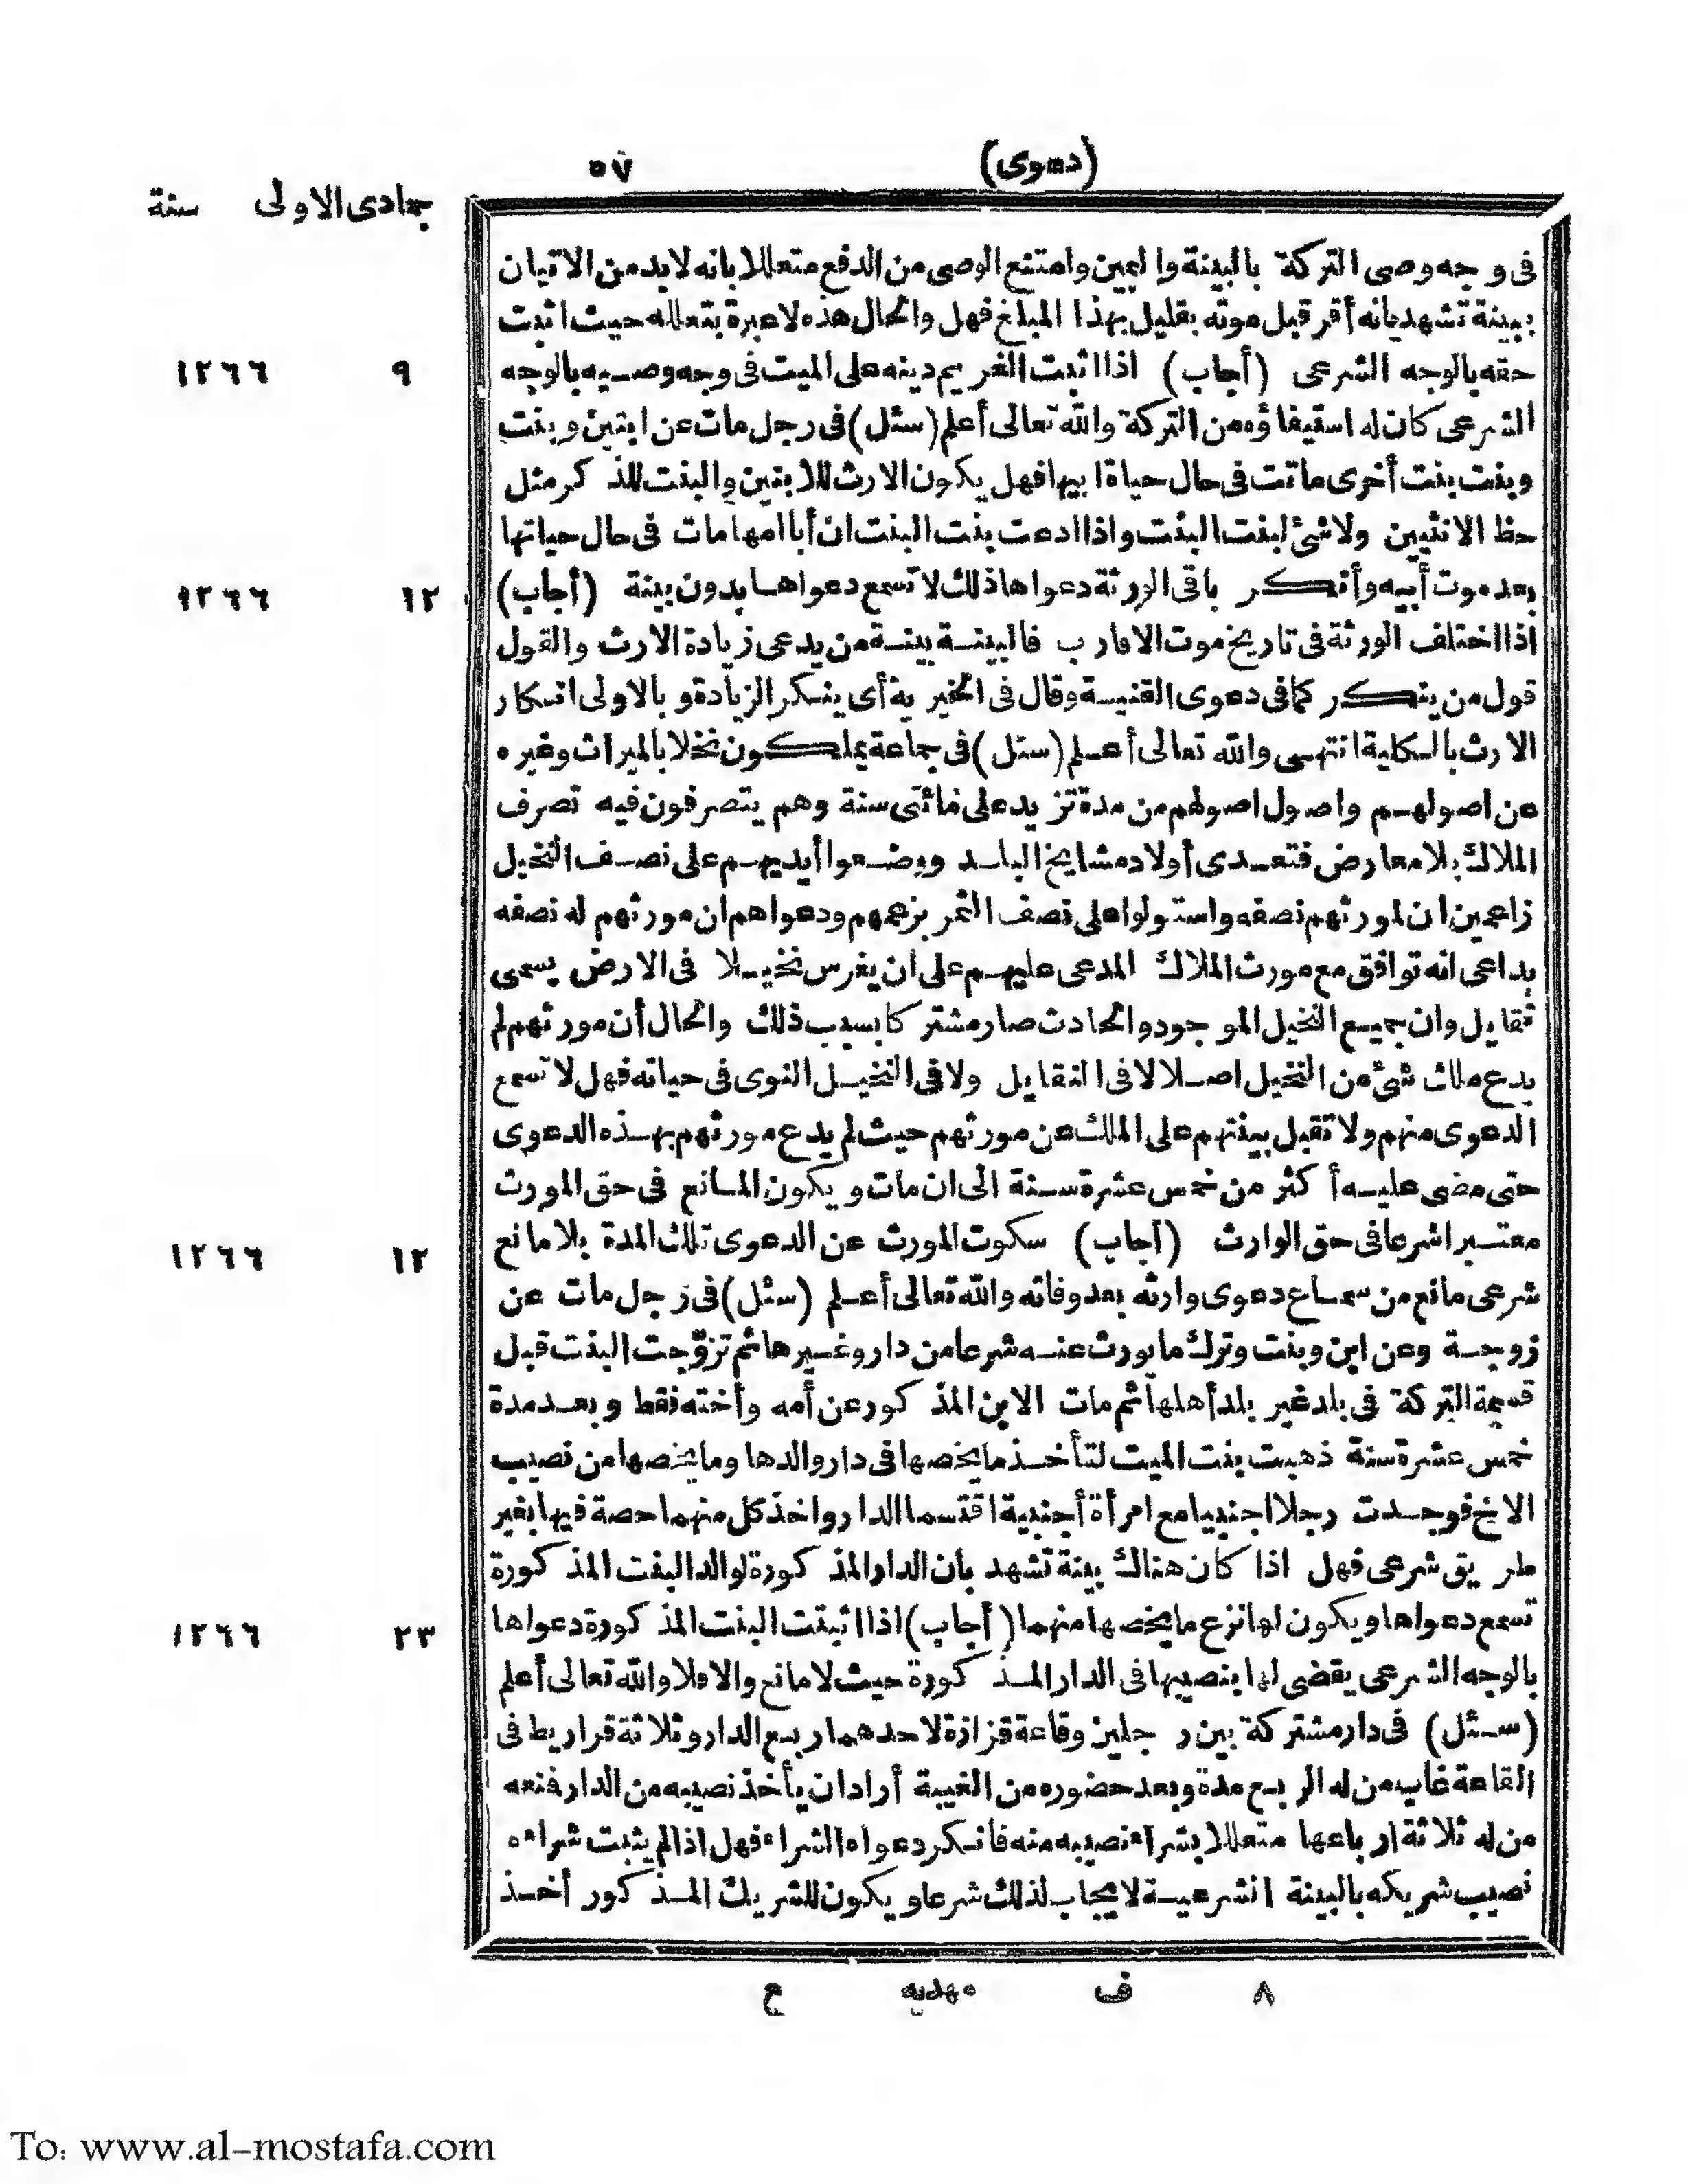 (دعوى) ٥٧
جمادى الاولى سنة
فى وجه وصى التركة بالبينة واليمين وامتنع الوصى من الدفع متعللا بانه لا بد من الاتيان
ببينة تشهد بانه أقر قبل موته بقليل بهذا المبلغ فهل والحال هذه لا عبرة بتعلله حيث اثبت
حقه بالوجه الشرعى (أجاب) اذا اثبت الغريم دينه على الميت فى وجه وصيه بالوجه ٩ ١٢٦٦
الشرعى كان له استيفاؤه من التركة والله تعالى أعلم (سئل) فى رجل مات عن ابنين وبنت
وبنت بنت أخرى ماتت فى حال حياة ابيها فهل يكون الارث للابنين والبنت للذكر مثل
حظ الانثيين ولا شئ لبنت البنت واذا ادعت بنت البنت ان أبا امها مات فى حال حياتها
بعد موت أبيه وأنكر باقى الورثة دعواها ذلك لا تسمع دعواها بدون بينة (أجاب) ١٢ ١٢٦٦
اذا اختلف الورثة فى تاريخ موت الاقارب فالبينة بينة من يدعى زيادة الارث والقول
قول من ينكر كما فى دعوى القنية وقال فى الخيرية أى ينكر الزيادة وبالاولى انكار
الارث بالكلية انتهى والله تعالى أعلم (سئل) فى جماعة يملكون نخلا بالميراث وغيره
عن اصولهم واصول اصولهم من مدة تزيد على مائتى سنة وهم يتصرفون فيه تصرف
الملاك بلا معارض فتعدى أولاد مشايخ البلد ووضعوا أيديهم على نصف النخيل
زاعمين ان لمورثهم نصفه واستولوا على نصف الثمر بزعمهم ودعواهم ان مورثهم له نصفه
بداعى انه توافق مع مورث الملاك المدعى عليهم على ان يغرس نخيلا فى الارض يسمى
تقايل وان جميع النخيل الموجود والحادث صار مشتركا بسبب ذلك والحال أن مورثهم لم
يدع ملك شئ من النخيل اصلا لا فى النقايل ولا فى النخيل النوى فى حياته فهل لا تسمع
الدعوى منهم ولا تقبل بينتهم على الملك عن مورثهم حيث لم يدع مورثهم بهذه الدعوى
حتى مضى عليه أكثر من خمس عشرة سنة الى ان مات ويكون المانع فى حق المورث
معتبرا شرعا فى حق الوارث (أجاب) سكوت المورث عن الدعوى تلك المدة بلا مانع ١٢ ١٢٦٦
شرعى مانع من سماع دعوى وارثه بعد وفاته والله تعالى أعلم (سئل) فى رجل مات عن
زوجة وعن ابن وبنت وترك ما يورث عنه شرعا من دار وغيرها ثم تزوّجت البنت قبل
قسمة التركة فى بلد غير بلد أهلها ثم مات الابن المذكور عن أمه وأخته فقط وبعد مدة
خمس عشرة سنة ذهبت بنت الميت لتأخذ ما يخصها فى دار والدها وما يخصها من نصيب
الاخ فوجدت رجلا اجنبيا مع امرأة أجنبية اقتسما الدار واخذ كل منهما حصة فيها بغير
طريق شرعى فهل اذا كان هناك بينة تشهد بان الدار المذكورة لوالد البنت المذكورة
تسمع دعواها ويكون لها نزع ما يخصها منهما (أجاب) اذا اثبتت البنت المذكورة دعواها ٢٣ ١٢٦٦
بالوجه الشرعى يقضى لها بنصيبها فى الدار المذكورة حيث لا مانع والا فلا والله تعالى أعلم
(سئل) فى دار مشتركة بين رجلين وقاعة قزازة لاحدهما ربع الدار وثلاثة قراريط فى
القاعة غاب من له الربع مدة وبعد حضوره من الغيبة أراد ان يأخذ نصيبه من الدار فمنعه
من له ثلاثة ارباعها متعللا بشراء نصيبه منه فانكر دعواه الشراء فهل اذا لم يثبت شراءه
نصيب شريكه بالبينة الشرعية لا يجاب لذلك شرعا ويكون للشريك المذكور أخذ
٨ ف مهديه ع
To: www.al-mostafa.com